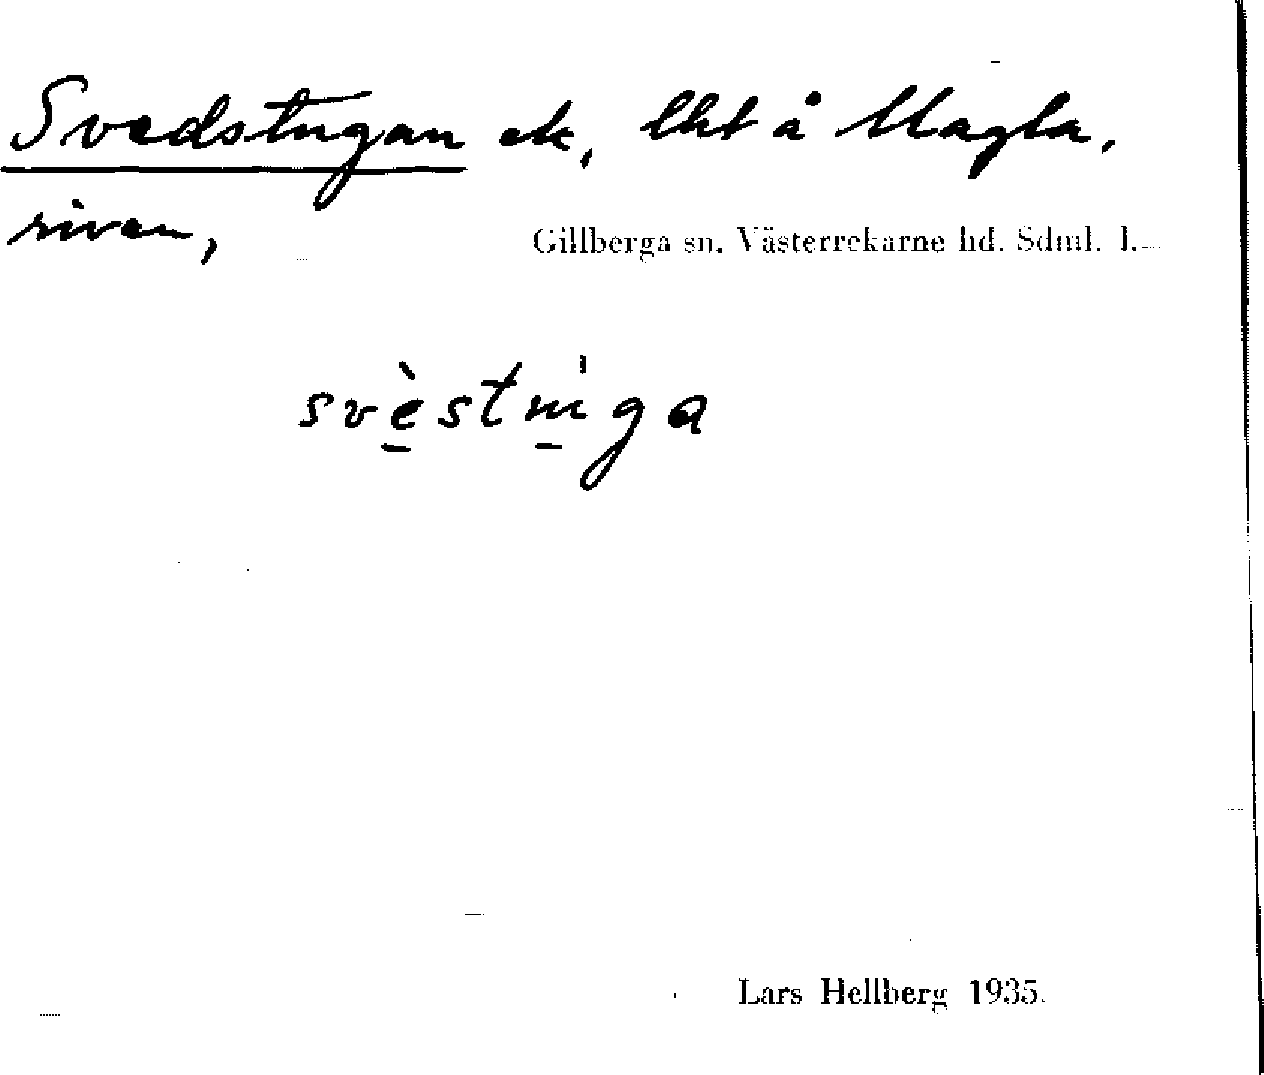 Svedstugan ek, lht å Magla,
riven,
Gillberga sn. Västerrekarne hd. Sdml. l.
svèstuga
Lars Hellberg 1935.